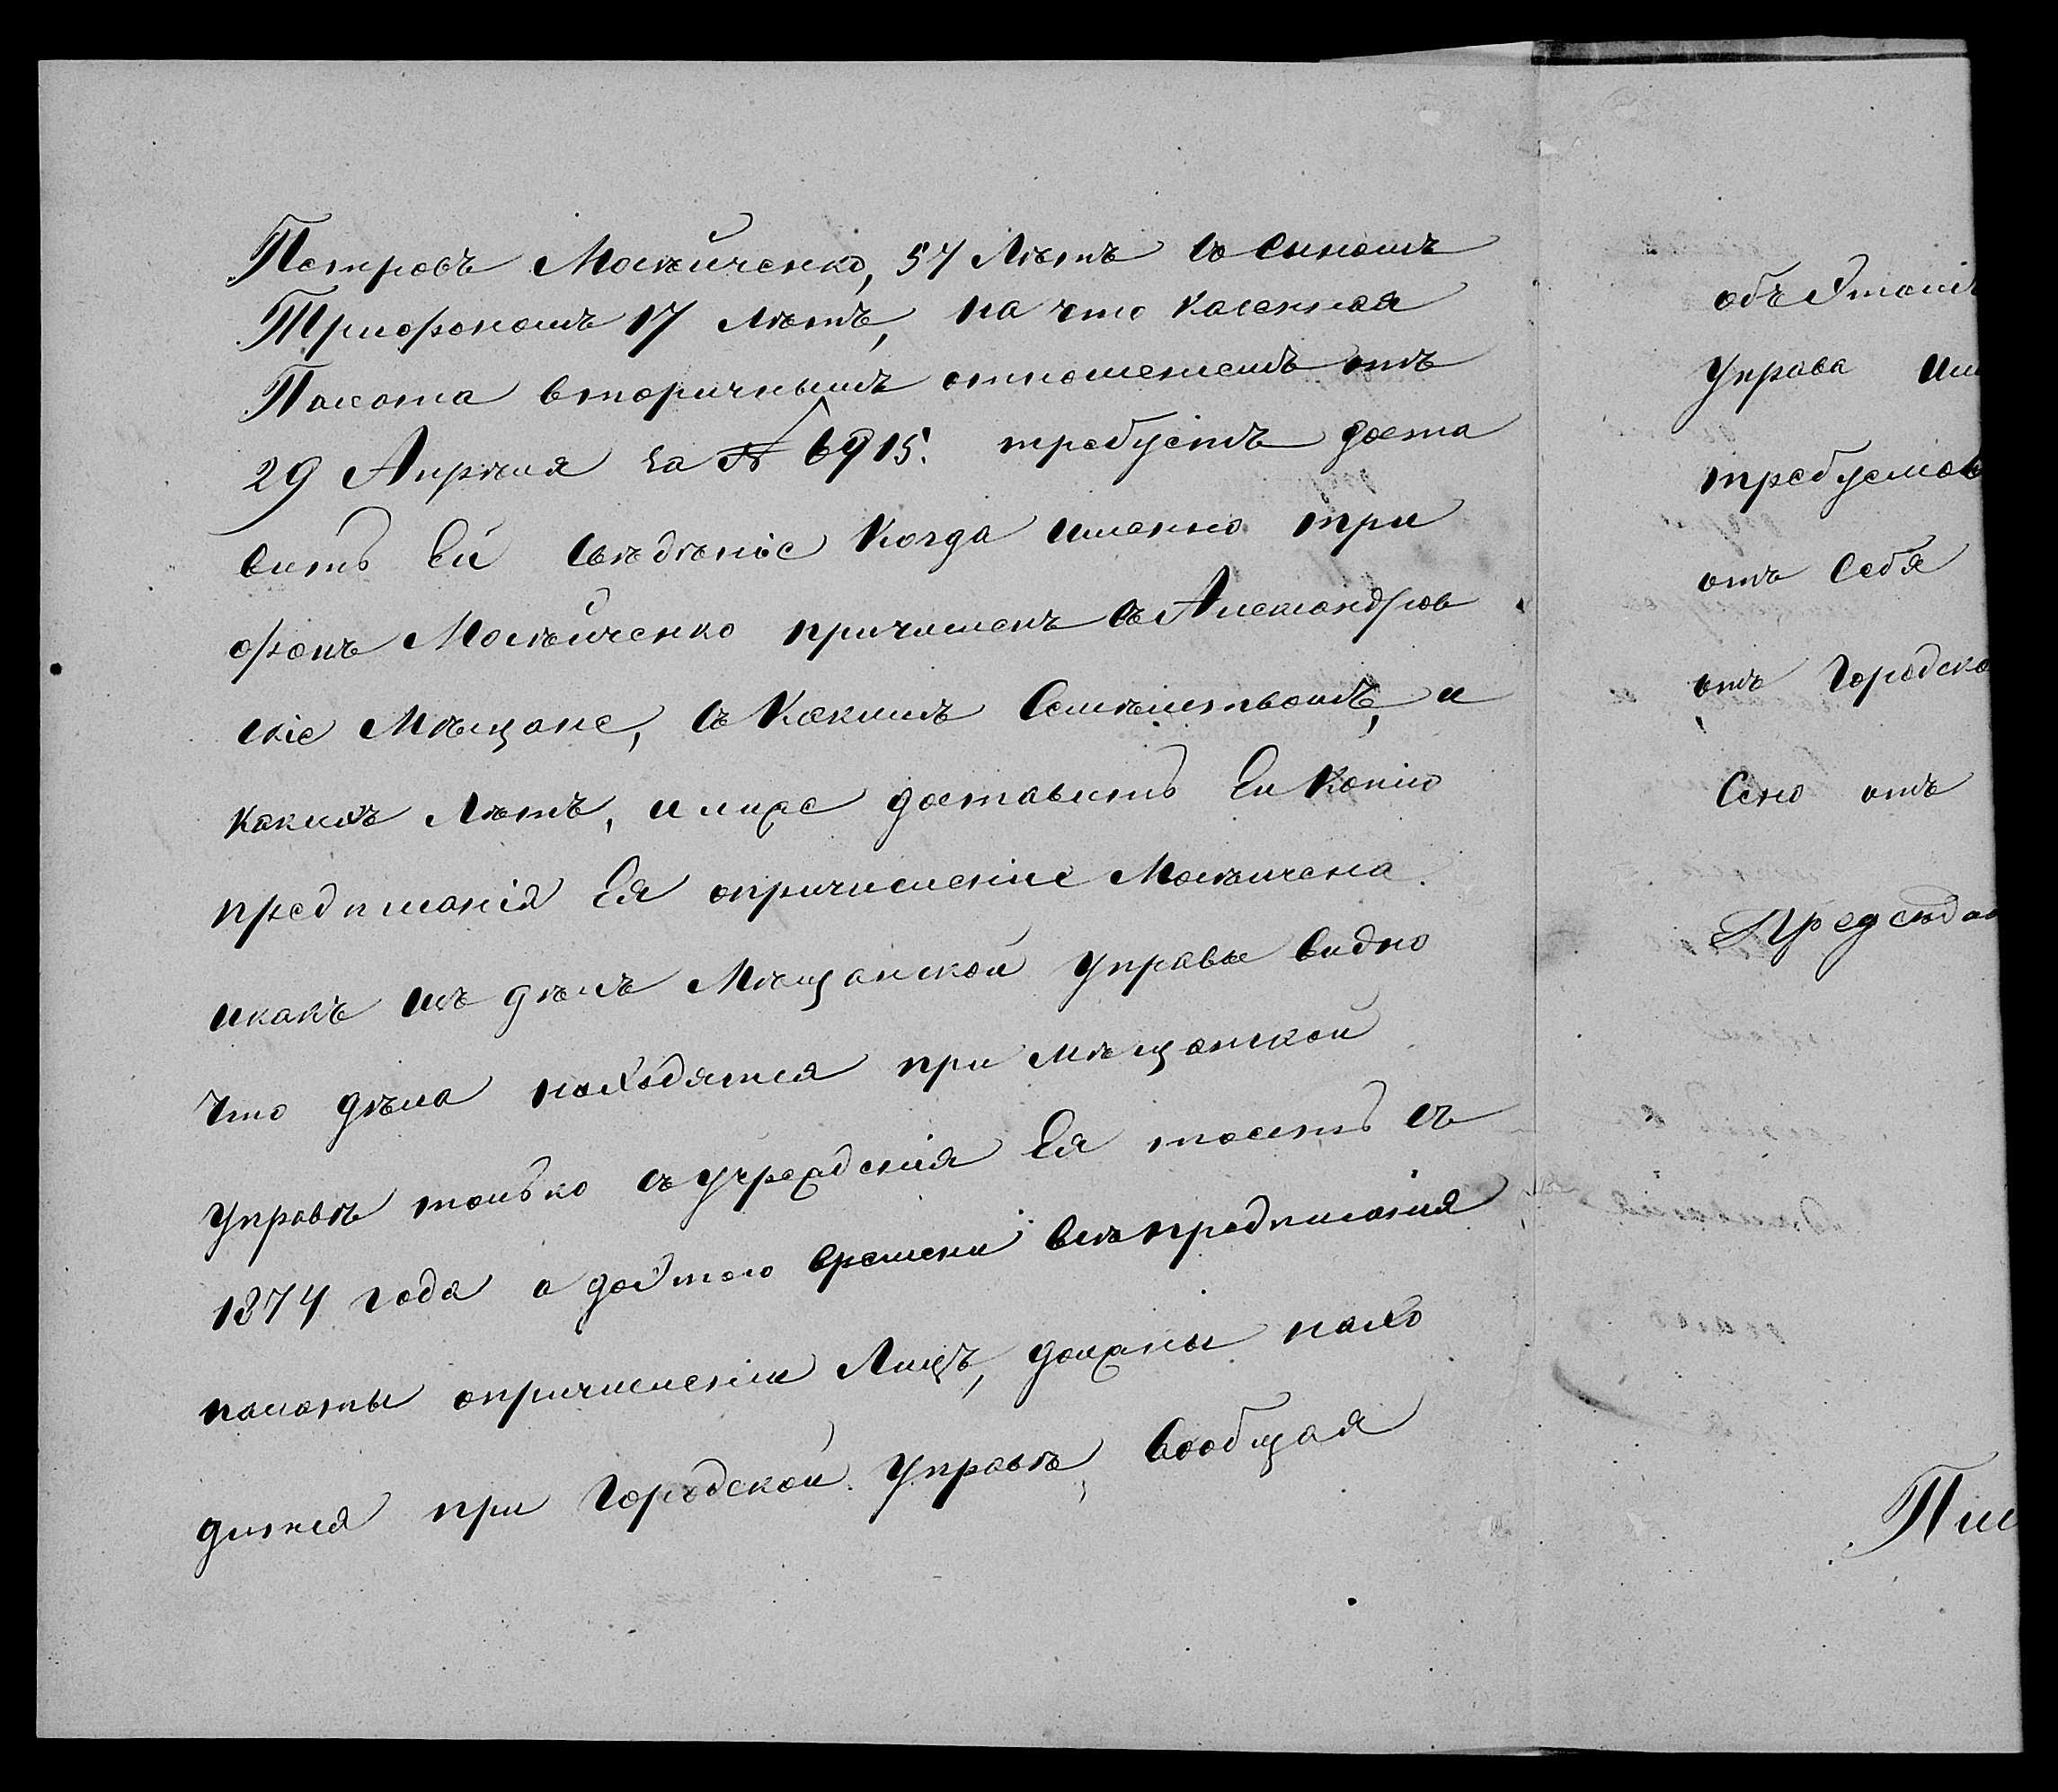 Петровъ Мосѣйченко, 57 Лѣтъ со Сыномъ
Трифономъ 17 лѣтъ, на что касенная
Палата вторичнымъ отношенiемъ отъ
29 Апрѣля за № 6915. требуетъ доста
вить Ей Свѣденiе Когда именно три
фонъ Мосѣйченко причисленъ въ Александров
скiе Мѣщане, съ Какимъ Семѣйствомъ, и
какихъ Лѣтъ, и même
предписанiя Ея опричисленiе Мосѣйченка
икакъ изъ дѣлъ Мѣщанской управы видно
что дѣла находятся при мѣщанской
управѣ только съ учрежденiя Ея тоесть съ
1874 года а доэтого времени всѣ предписанiя
палаты опричисленiи Лицъ, должны нахо
дится при Городской Управѣ, Сообщая
объ Этомъ
Управа
требуемое
отъ Себя
отъ Городско
Сено отъ
Предсѣда